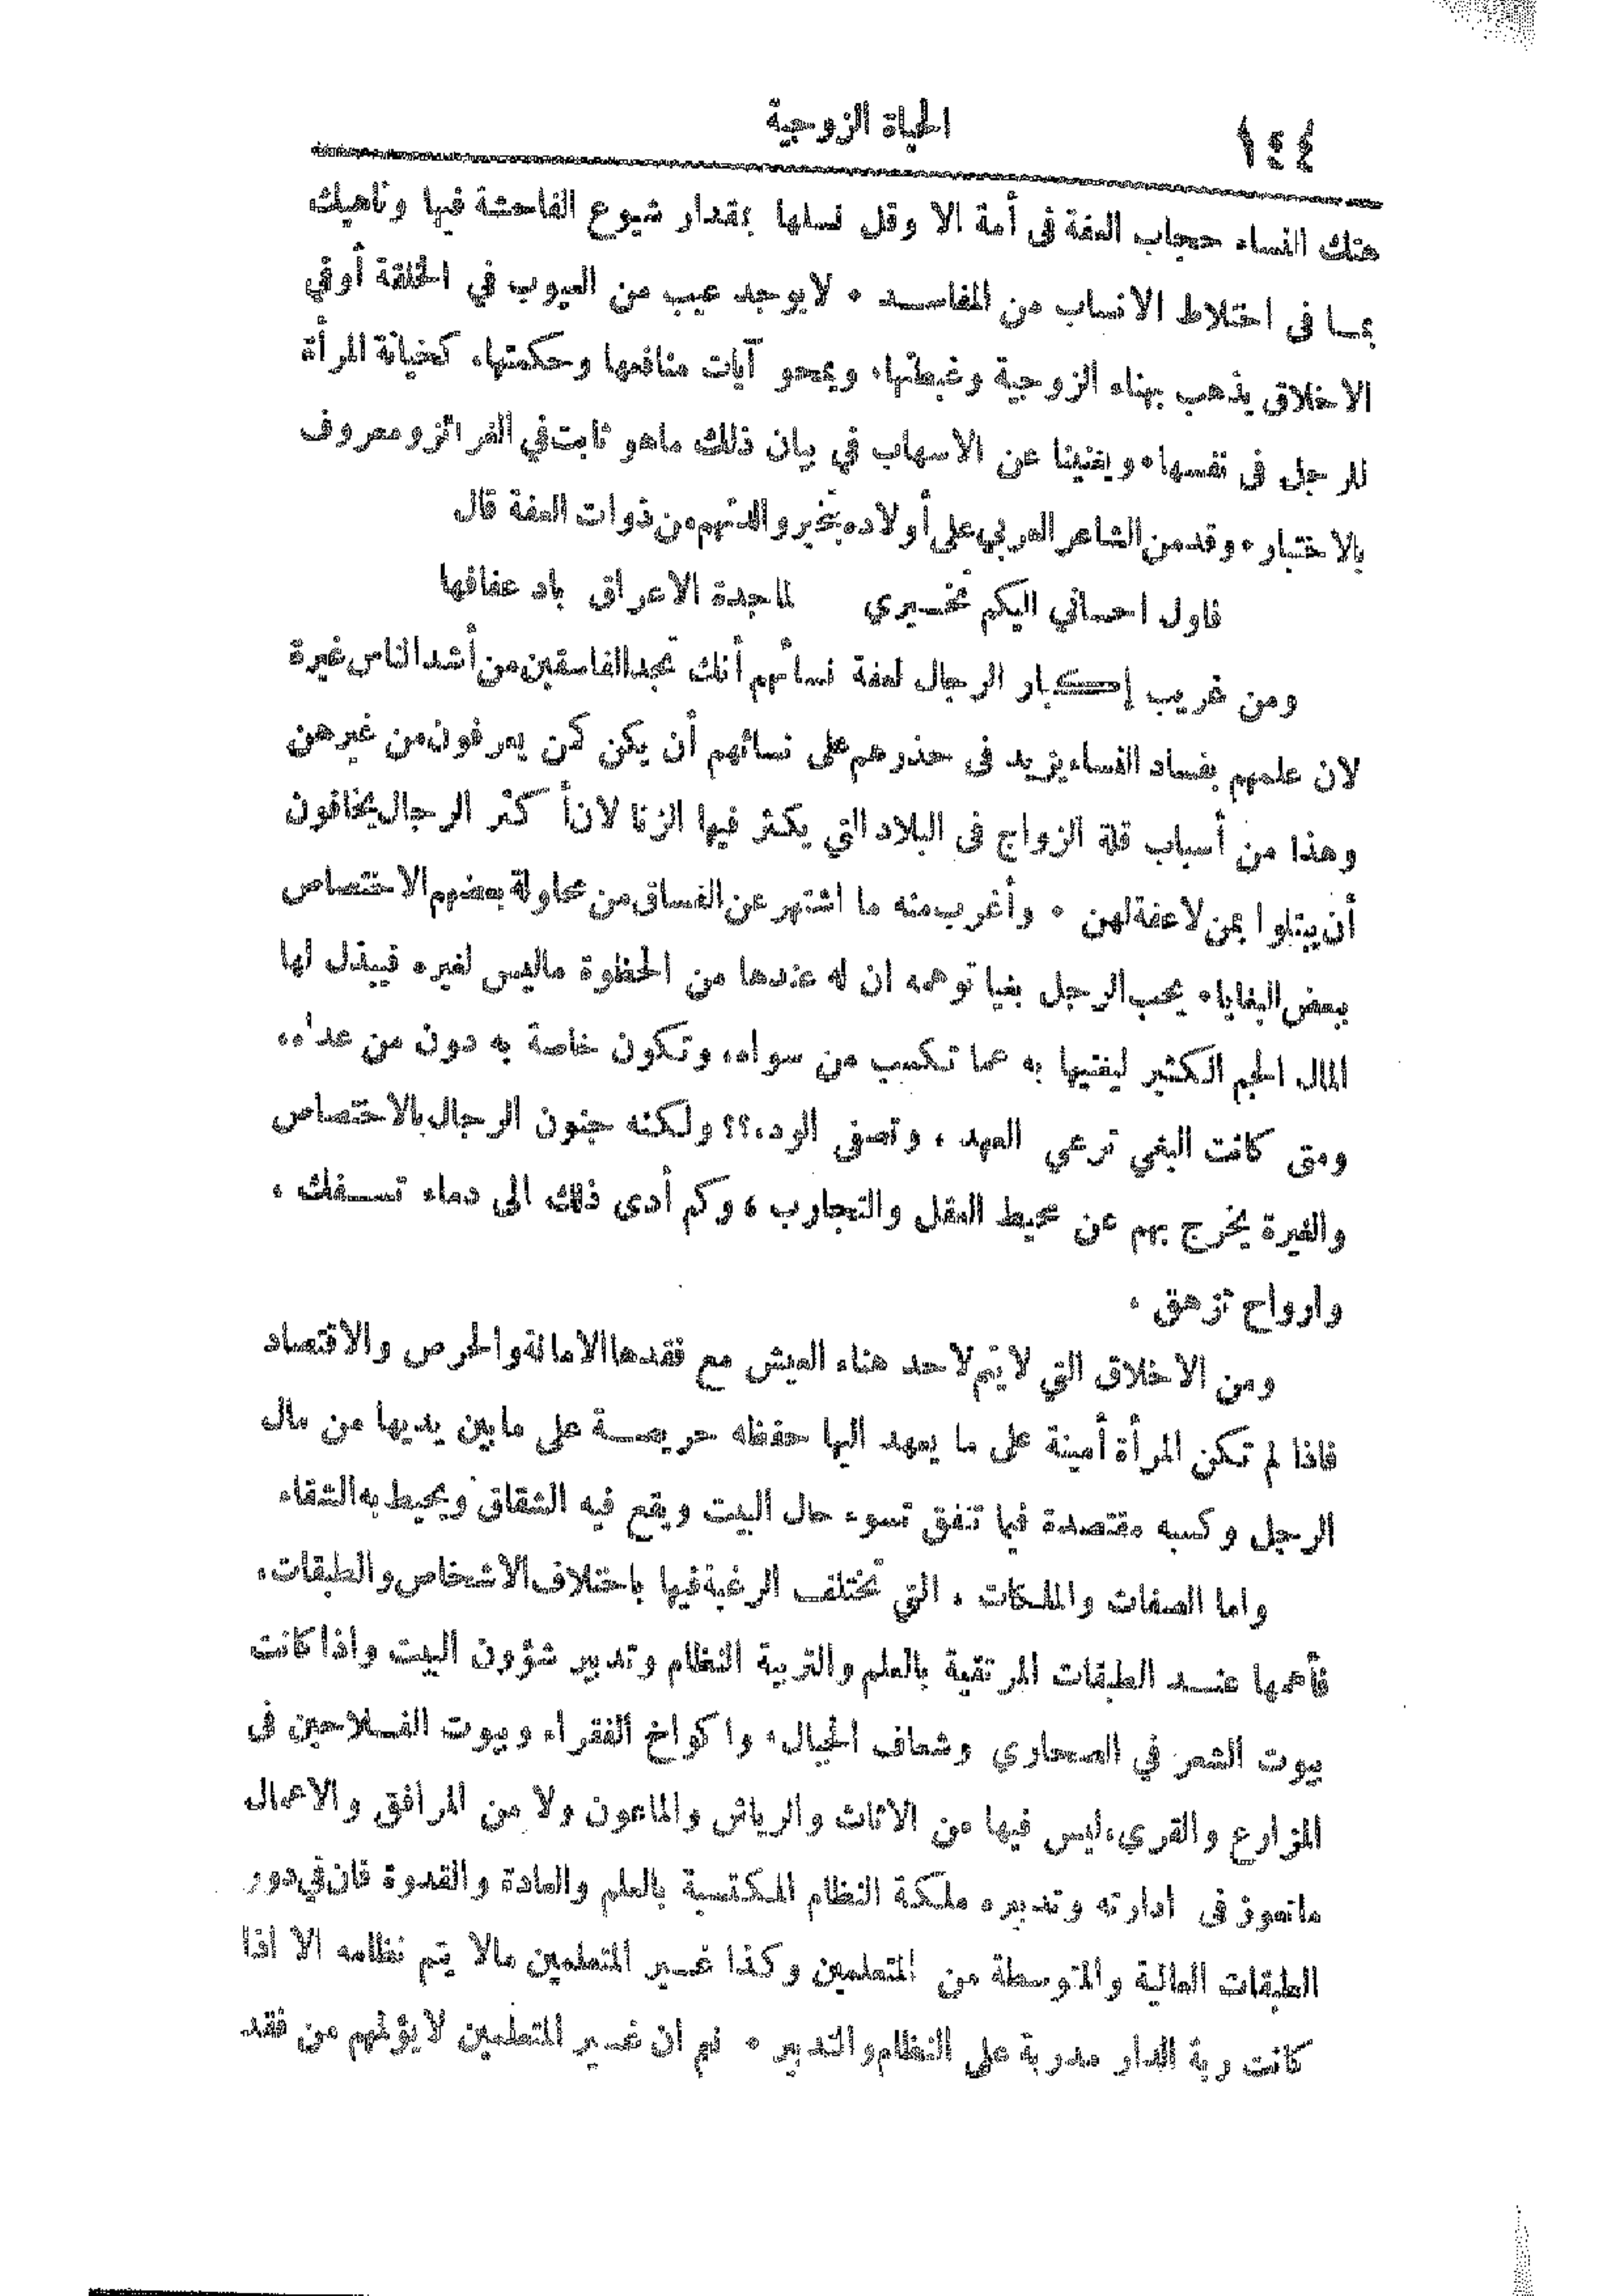 ١٤٤
الحياة الزوجية
هتك النساء حجاب العفة فى أمة الا وقل نسلها بمقدار شيوع الفاحشة فيها وناهيك
بمـا فى اختلاط الانساب من المفاسـد . لا يوجد عيب من العيوب في الخلقة أو في
الاخلاق يذهب بهناء الزوجية وغبطتها، ويمحو آيات منافعها وحكمتها، كخيانة المرأة
للرجل فى نفسها، ويغنينا عن الاسهاب في بيان ذلك ماهو ثابت في الغرائز ومعروف
بالاختبار، وقد من الشاعر العربي على أولاده بتخير والدتهم من ذوات العفة قال
فاول احساني اليكم تخـيري لماجدة الاعراق باد عفافها
ومن غريب إكـبار الرجال لعفة نسائهم أنك تجد الفاسقين من أشد الناس غيرة
لان علمهم بفساد النساء يزيد فى حذرهم على نسائهم أن يكن كمن يعرفون من غيرهن
وهذا من أسباب قلة الزواج فى البلاد التي يكثر فيها الزنا لان أكثر الرجال يخافون
أن يبتلوا بمن لا عفة لهن . وأغرب منه ما اشتهر عن الفساق من محاولة بعضهم الاختصاص
ببعض البغايا، يحب الرجل بغيا توهمه ان له عندها من الحظوة ماليس لغيره فيبذل لها
المال الجم الكثير ليغنيها به عما تكسب من سواه، وتكون خاصة به دون من عداه،
ومتى كانت البغي ترعي العهد ، وتصفى الود،؟؟ ولكنه جنون الرجال بالاختصاص
والغيرة يخرج بهم عن محيط العقل والتجارب ، وكم أدى ذلك الى دماء تسـفك ،
وارواح تزهق .
ومن الاخلاق التي لا يتم لاحد هناء العيش مع فقدها الامانة والحرص والاقتصاد
فاذا لم تكن المرأة أمينة على ما يعهد اليها حفظه حريصـة على ما بين يديها من مال
الرجل وكسبه مقتصدة فيما تنفق تسوء حال البيت ويقع فيه الشقاق ويحيط به الشقاء
واما الصفات والملكات ، التي تختلف الرغبة فيها باختلاف الاشخاص والطبقات،
فأهمها عنـد الطبقات المرتقية بالعلم والتربية النظام وتدبير شؤون البيت واذا كانت
بيوت الشعر في الصحاري وشعاف الجبال، واكواخ الفقراء وبيوت الفـلاحين فى
المزارع والقرى، ليس فيها من الاثاث والرياش والماعون ولا من المرافق والاعمال
ما تعوز فى ادارته وتدبيره ملكة النظام المكتسبة بالعلم والعادة والقدوة فان في دور
الطبقات العالية والمتوسطة من المتعلمين وكذا غـير المتعلمين مالا يتم نظامه الا اذا
كانت ربة الدار مدربة على النظام والتدبير . نعم ان غـير المتعلمين لا يؤلمهم من فقد